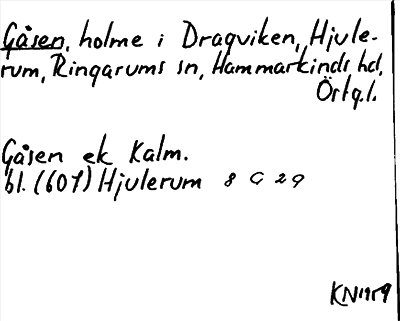 Gåsen, holme i Dragviken, Hjule-
rum, Ringarums sn, Hammarkinds hd,
Östg.l.
Gåsen ek Kalm.
bl. (607) Hjulerum 8 G 2 g
KN 1959